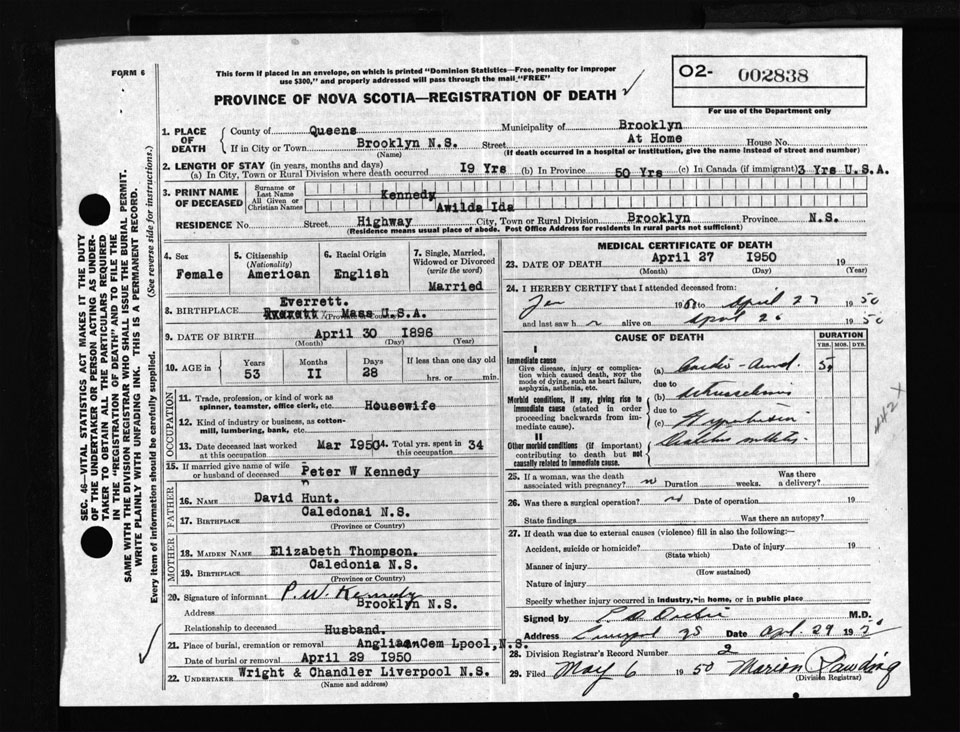 FORM 6
This form if placed in an envelope, on which is printed "Dominion Statistics—Free, penalty for improper
use $300," and properly addressed will pass through the mail "FREE"
O2- 002838
For use of the Department only
PROVINCE OF NOVA SCOTIA—REGISTRATION OF DEATH
SEC. 46—VITAL STATISTICS ACT MAKES IT THE DUTY
OF THE UNDERTAKER OR PERSON ACTING AS UNDER-
TAKER TO OBTAIN ALL THE PARTICULARS REQUIRED
IN THE "REGISTRATION OF DEATH" AND TO FILE THE
SAME WITH THE DIVISION REGISTRAR WHO SHALL ISSUE THE BURIAL PERMIT.
WRITE PLAINLY WITH UNFADING INK. THIS IS A PERMANENT RECORD.
Every item of information should be carefully supplied. (See reverse side for instructions.)
1. PLACE OF DEATH
County of Queens Municipality of Brooklyn
If in City or Town Brooklyn N.S. Street At Home House No.
(Name) (If death occurred in a hospital or institution, give the name instead of street and number)
2. LENGTH OF STAY (in years, months and days)
(a) In City, Town or Rural Division where death occurred I9 Yrs (b) In Province 50 Yrs (c) In Canada (if immigrant) 3 Yrs U.S.A.
3. PRINT NAME OF DECEASED
Surname or Last Name Kennedy
All Given or Christian Names Awilda Ida
RESIDENCE No. Street Highway City, Town or Rural Division Brooklyn Province N.S.
(Residence means usual place of abode. Post Office Address for residents in rural parts not sufficient)
4. Sex Female
5. Citizenship (Nationality) American
6. Racial Origin English
7. Single, Married, Widowed or Divorced (write the word) Married
8. BIRTHPLACE Everrett. Mass U.S.A.
(Province or Country)
9. DATE OF BIRTH April 30 I896
(Month) (Day) (Year)
10. AGE in Years 53 Months II Days 28 If less than one day old hrs. or min.
OCCUPATION
11. Trade, profession, or kind of work as
spinner, teamster, office clerk, etc. Housewife
12. Kind of industry or business, as cotton-
mill, lumbering, bank, etc.
13. Date deceased last worked
at this occupation Mar I950 14. Total yrs. spent in
this occupation 34
15. If married give name of wife
or husband of deceased Peter W Kennedy
FATHER
16. NAME David Hunt.
17. BIRTHPLACE Caledonai N.S.
(Province or Country)
MOTHER
18. MAIDEN NAME Elizabeth Thompson.
19. BIRTHPLACE Caledonia N.S.
(Province or Country)
20. Signature of informant P. W. Kennedy
Address Brooklyn N.S.
Relationship to deceased Husband.
21. Place of burial, cremation or removal Anglican Cem Lpool, N.S.
Date of burial or removal April 29 I950
22. UNDERTAKER Wright & Chandler Liverpool N.S.
(Name and address)
MEDICAL CERTIFICATE OF DEATH
23. DATE OF DEATH April 27 I950 19
(Month) (Day) (Year)
24. I HEREBY CERTIFY that I attended deceased from:
Jan 19 to April 27 1950
and last saw h alive on April 26 1950
CAUSE OF DEATH
DURATION
YRS. MOS. DYS.
I
Immediate cause
Give disease, injury or complica-
tion which caused death, NOT the
mode of dying, such as heart failure,
asphyxia, asthenia, etc.
(a) 5
due to
Morbid conditions, if any, giving rise to
immediate cause (stated in order
proceeding backwards from im-
mediate cause).
(b)
due to
(c) Hypertension
II
Other morbid conditions (if important)
contributing to death but not
causally related to immediate cause.
442 X
25. If a woman, was the death
associated with pregnancy? no Duration weeks. Was there
a delivery?
26. Was there a surgical operation? no Date of operation 19
State findings Was there an autopsy?
27. If death was due to external causes (violence) fill in also the following:—
Accident, suicide or homicide? Date of injury 19
(State which)
Manner of injury
(How sustained)
Nature of injury
Specify whether injury occurred in industry, in home, or in public place
Signed by M.D.
Address Liverpool NS Date Apr. 29 19
28. Division Registrar's Record Number 2
29. Filed May 6 1950 Marion Rawding
(Division Registrar)